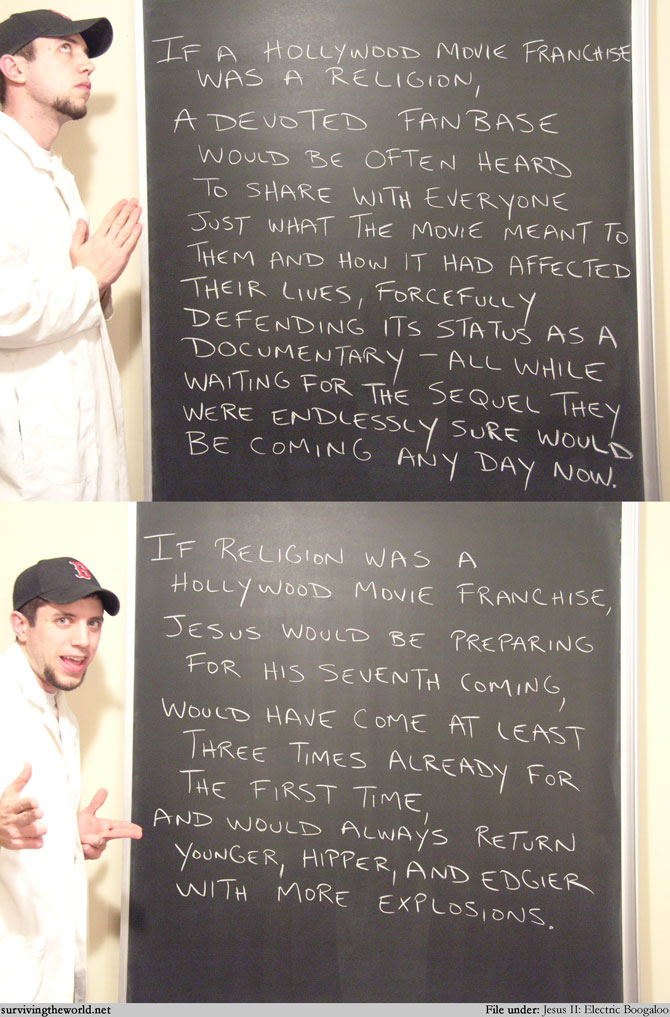 IF A HOLLYWOOD MOVIE FRANCHISE
WAS A RELIGION,
A DEVOTED FANBASE
WOULD BE OFTEN HEARD
TO SHARE WITH EVERYONE
JUST WHAT THE MOVIE MEANT TO
THEM AND HOW IT HAD AFFECTED
THEIR LIVES, FORCEFULLY
DEFENDING ITS STATUS AS A
DOCUMENTARY – ALL WHILE
WAITING FOR THE SEQUEL THEY
WERE ENDLESSLY SURE WOULD
BE COMING ANY DAY NOW.
B
IF RELIGION WAS A
HOLLYWOOD MOVIE FRANCHISE,
JESUS WOULD BE PREPARING
FOR HIS SEVENTH COMING,
WOULD HAVE COME AT LEAST
THREE TIMES ALREADY FOR
THE FIRST TIME,
AND WOULD ALWAYS RETURN
YOUNGER, HIPPER, AND EDGIER
WITH MORE EXPLOSIONS.
survivingtheworld.net
File under: Jesus II: Electric Boogaloo